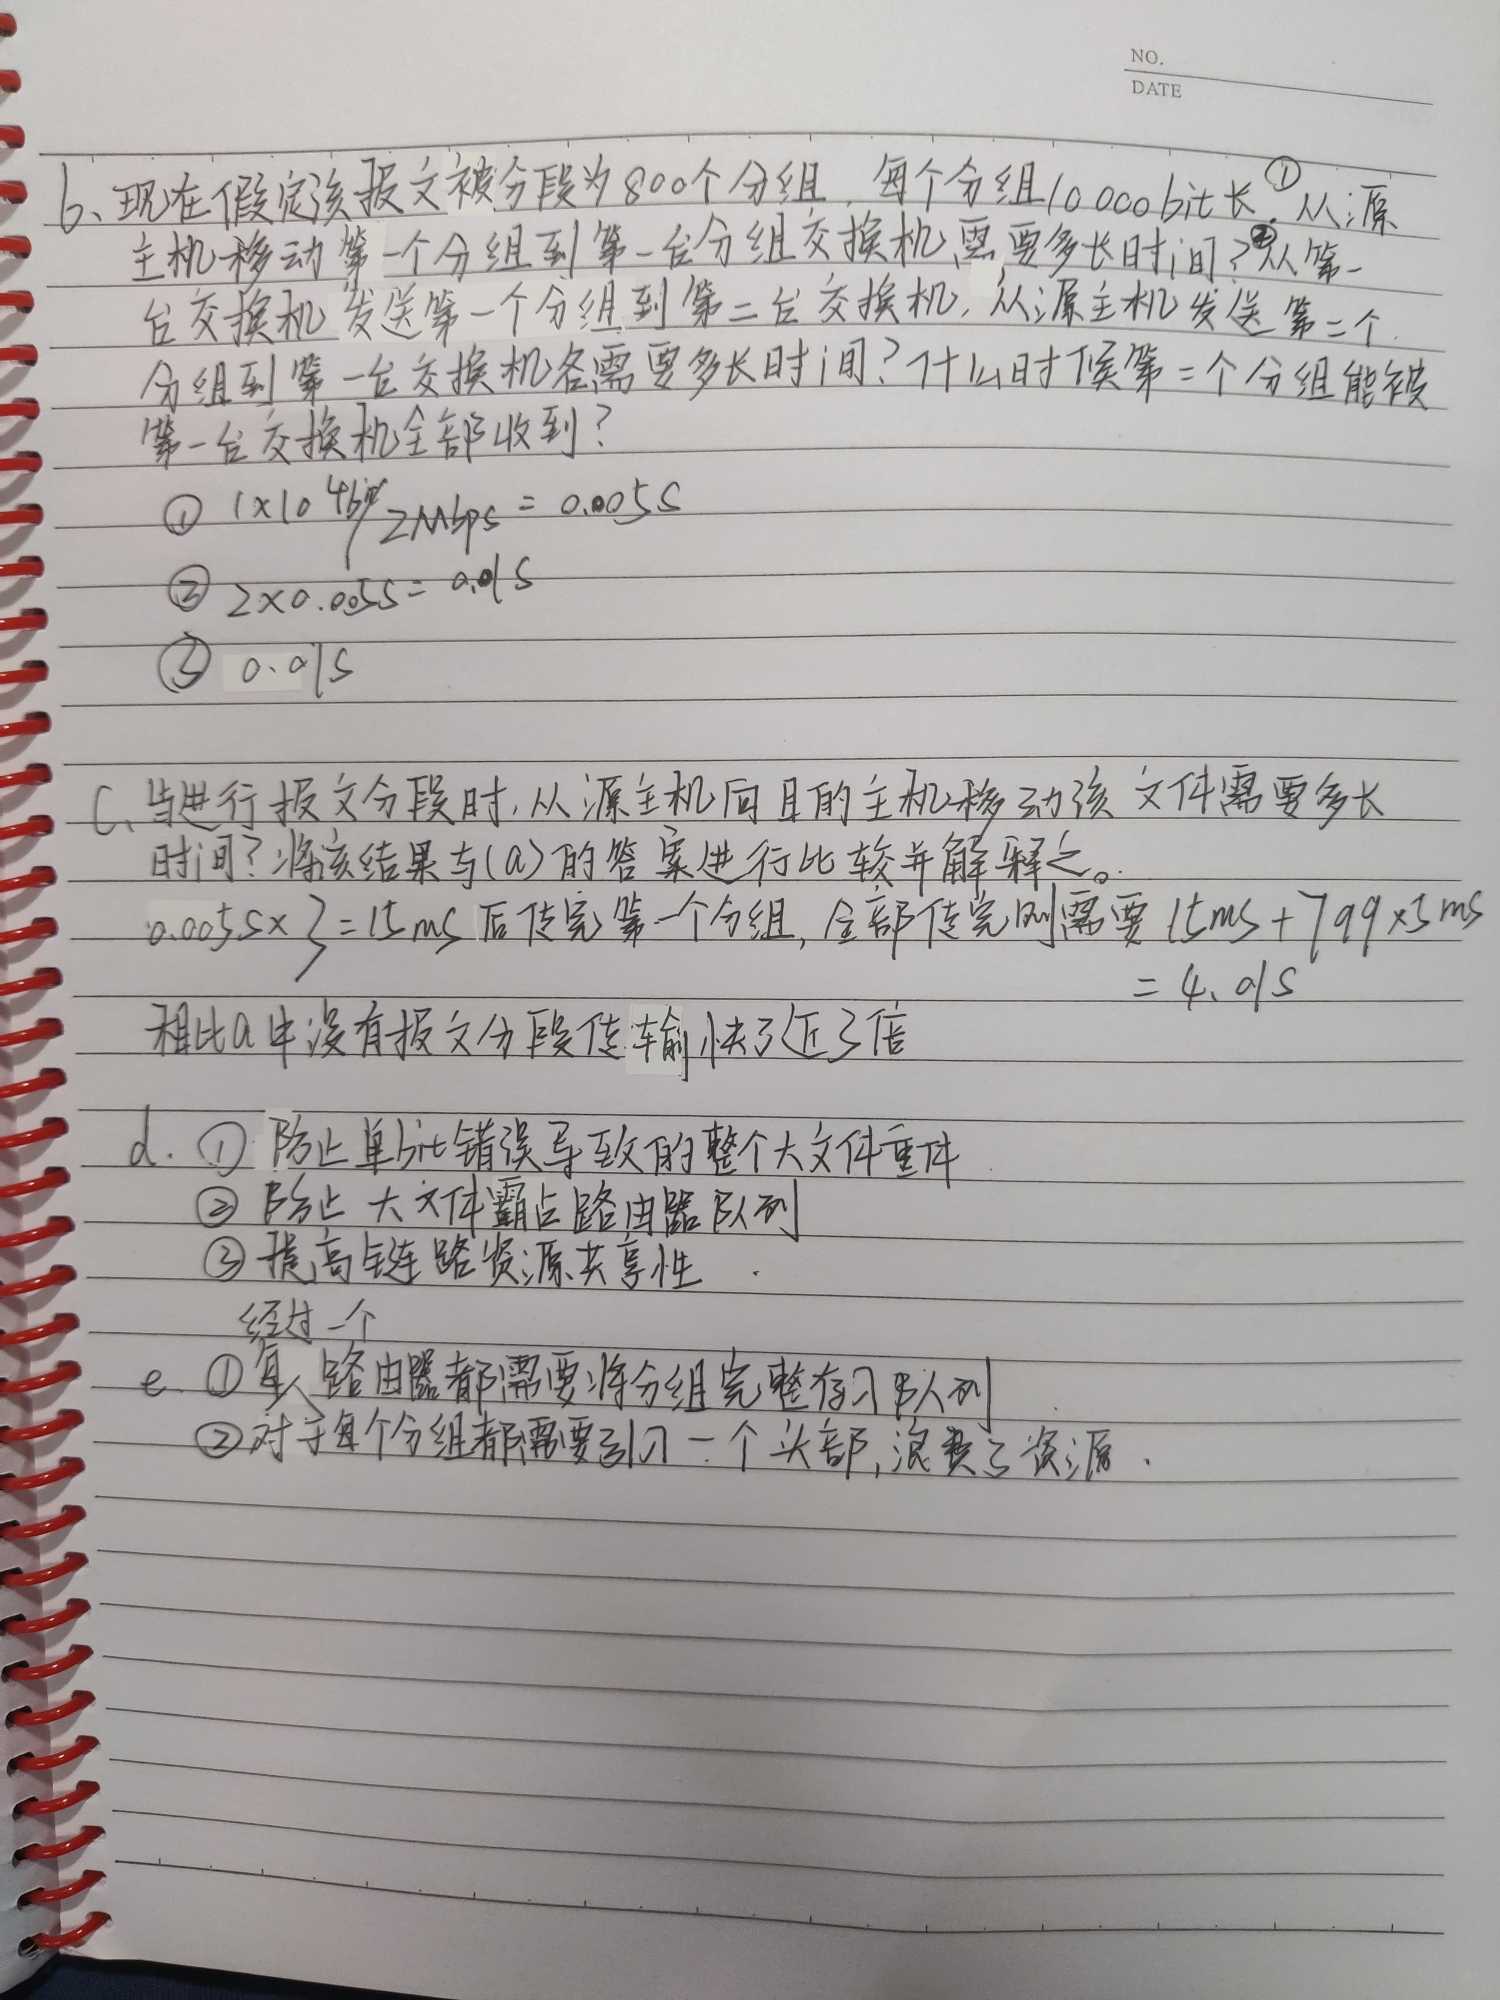 NO.
DATE
b、现在假定该报文被分段为800个分组，每个分组10000bit长。①从源
主机移动第一个分组到第一台分组交换机需要多长时间？②从第一
台交换机发送第一个分组到第二台交换机，从源主机发送第二个
分组到第一台交换机各需要多长时间？什么时候第二个分组能被
第一台交换机全部收到？
① 1×10^4bit/2Mbps = 0.005s
② 2×0.005s = 0.01s
③ 0.01s
C、当进行报文分段时，从源主机向目的主机移动该文件需要多长
时间？将该结果与(a)的答案进行比较并解释之。
0.005s×3=15ms后传完第一个分组，全部传完则需要15ms+799×5ms
= 4.01s
相比a中没有报文分段传输快了近3倍
d. ① 防止单bit错误导致的整个大文件重传
② 防止大文件霸占路由器队列
③ 提高链路资源共享性.
经过一个
e. ① 每路由器都需要将分组完整存入队列
② 对于每个分组都需要引入一个头部，浪费了资源.